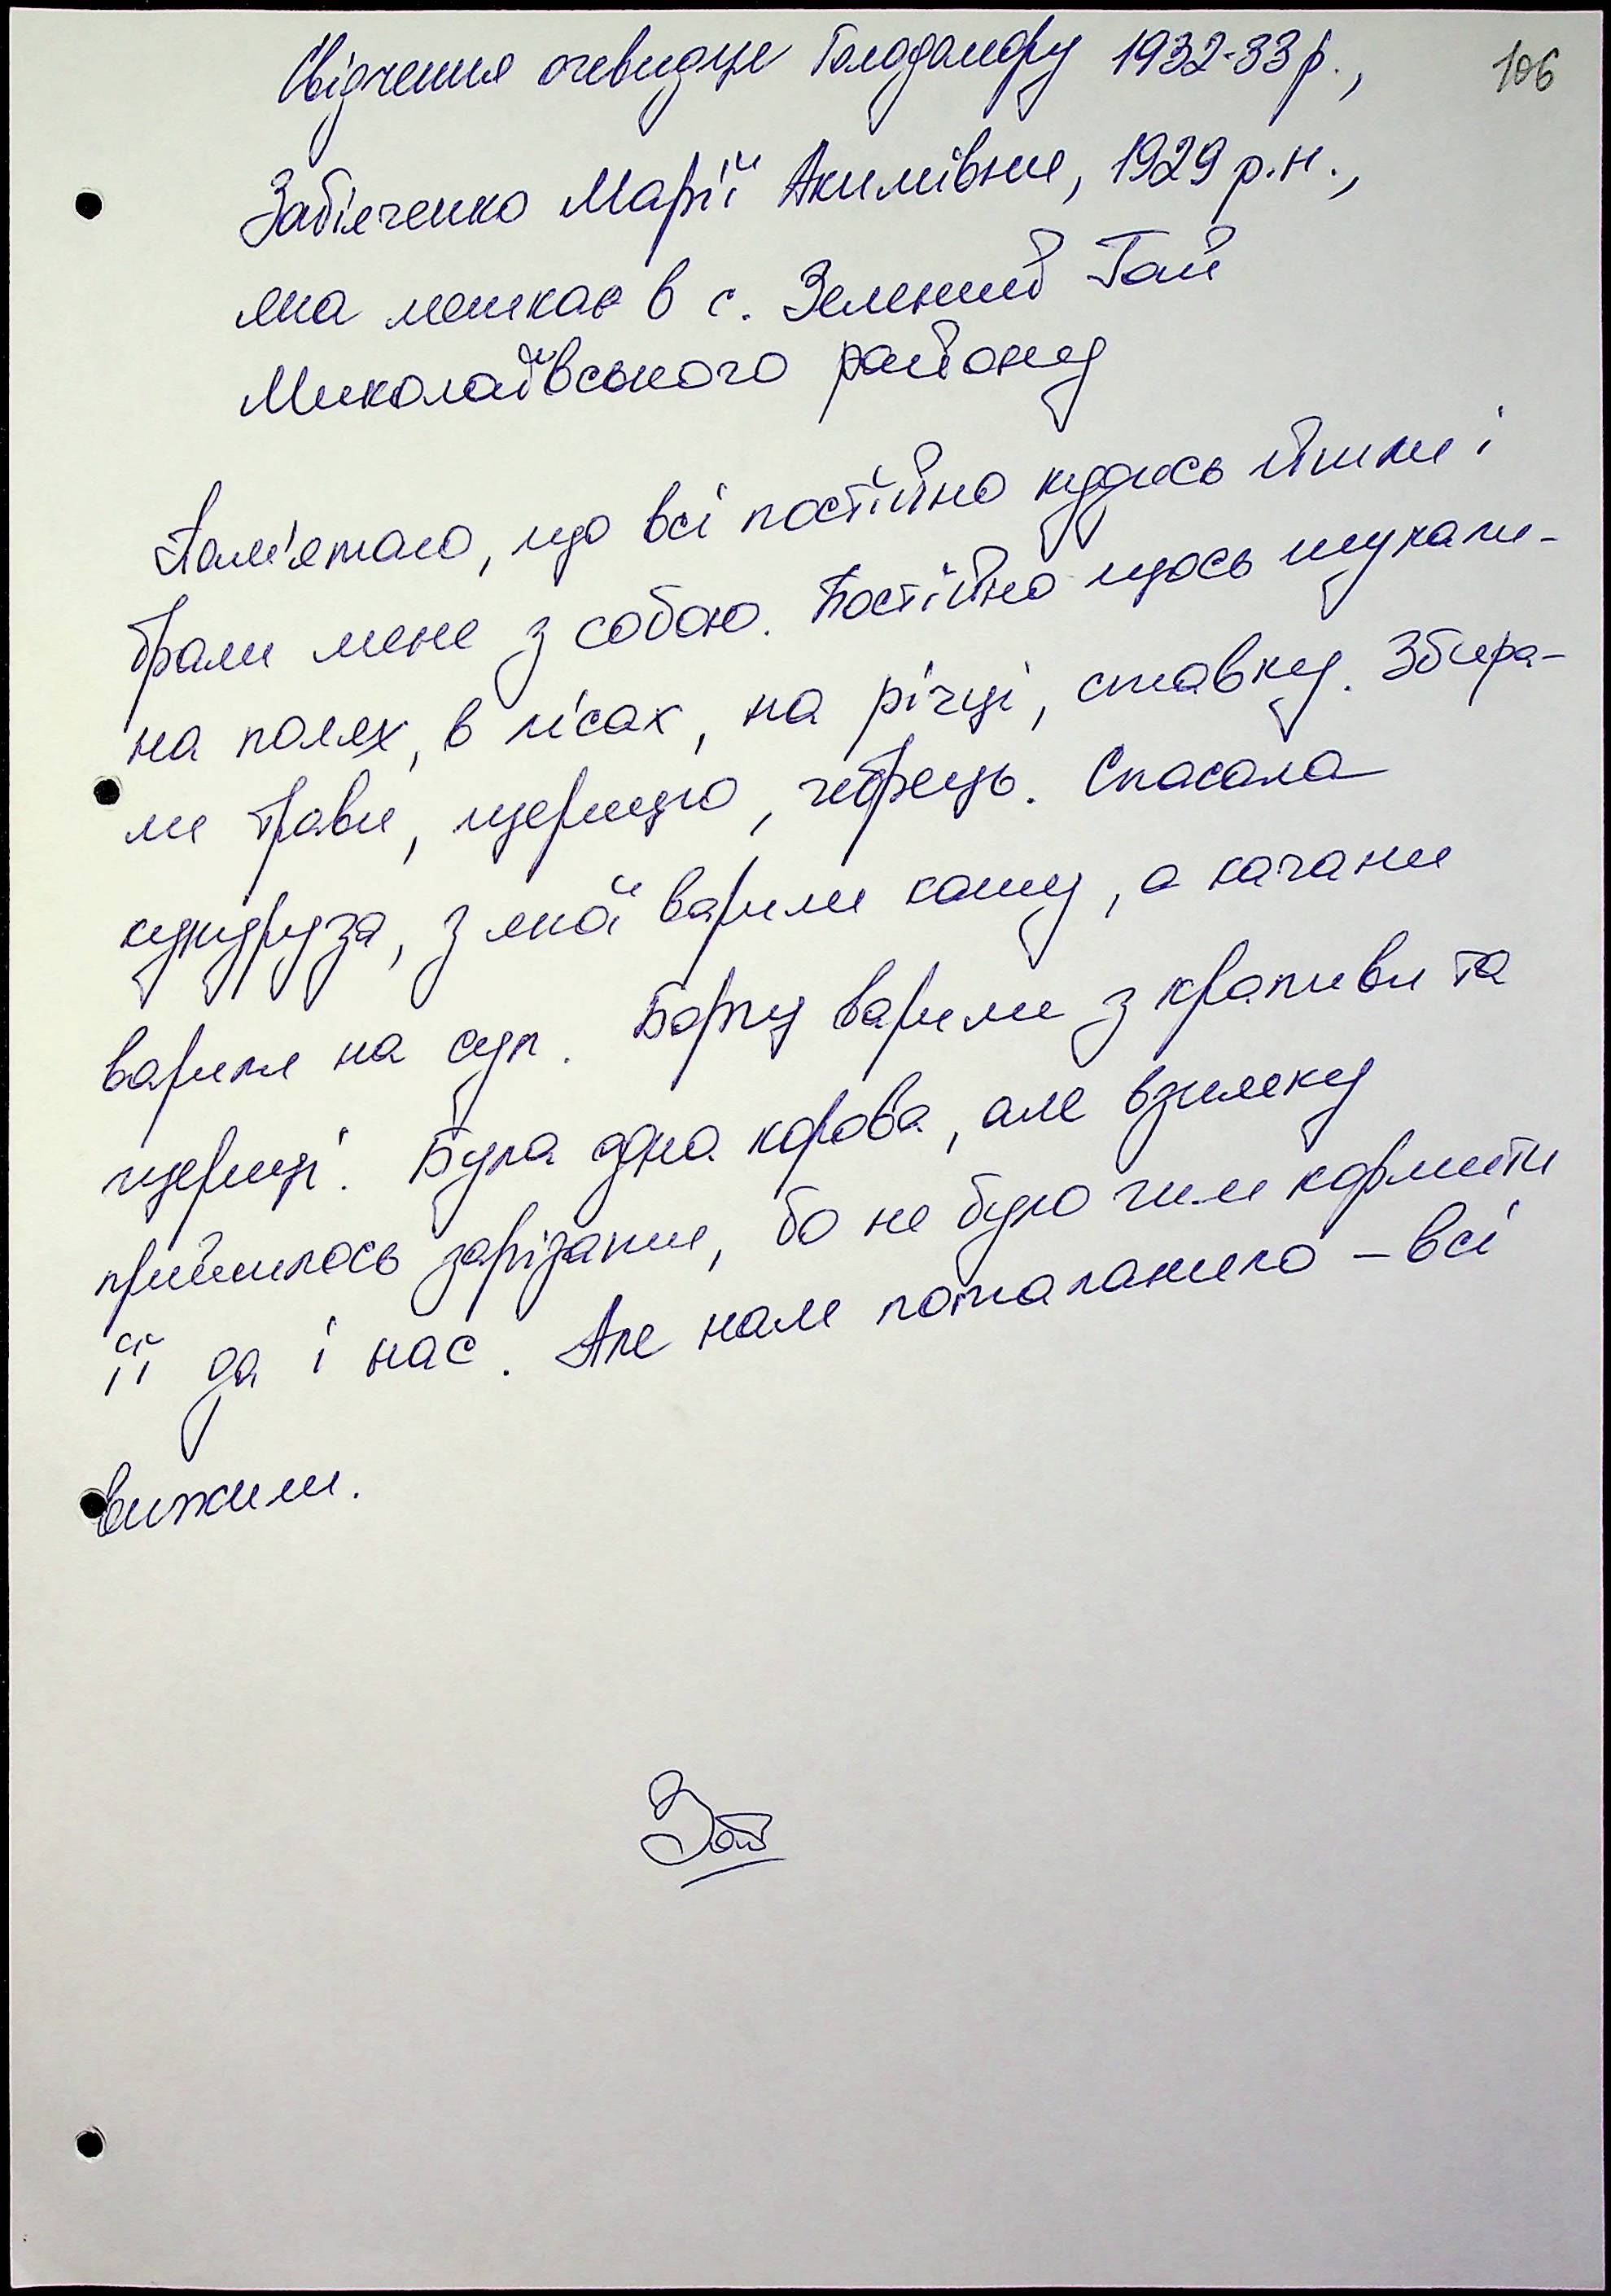 106
Свідчення очевидця Голодомору 1932-33 р.,
Забіяченко Марії Акимівни, 1929 р.н.,
яка мешкає в с. Зелений Гай
Миколаївського району
Пам'ятаю, що всі постійно кудись йшли і
брали мене з собою. Постійно щось шукали -
на полях, в лісах, на річці, ставку. Збира-
ли трави, щерицю, чебрець. Спасала
кукурудза, з якої варили кашу, а качани
варили на суп. Борщ варили з кропиви та
щериці. Була одна корова, але взимку
прийшлось зарізати, бо не було чим кормити
її да і нас. Але нам поталанило – всі
вижили.
Заб